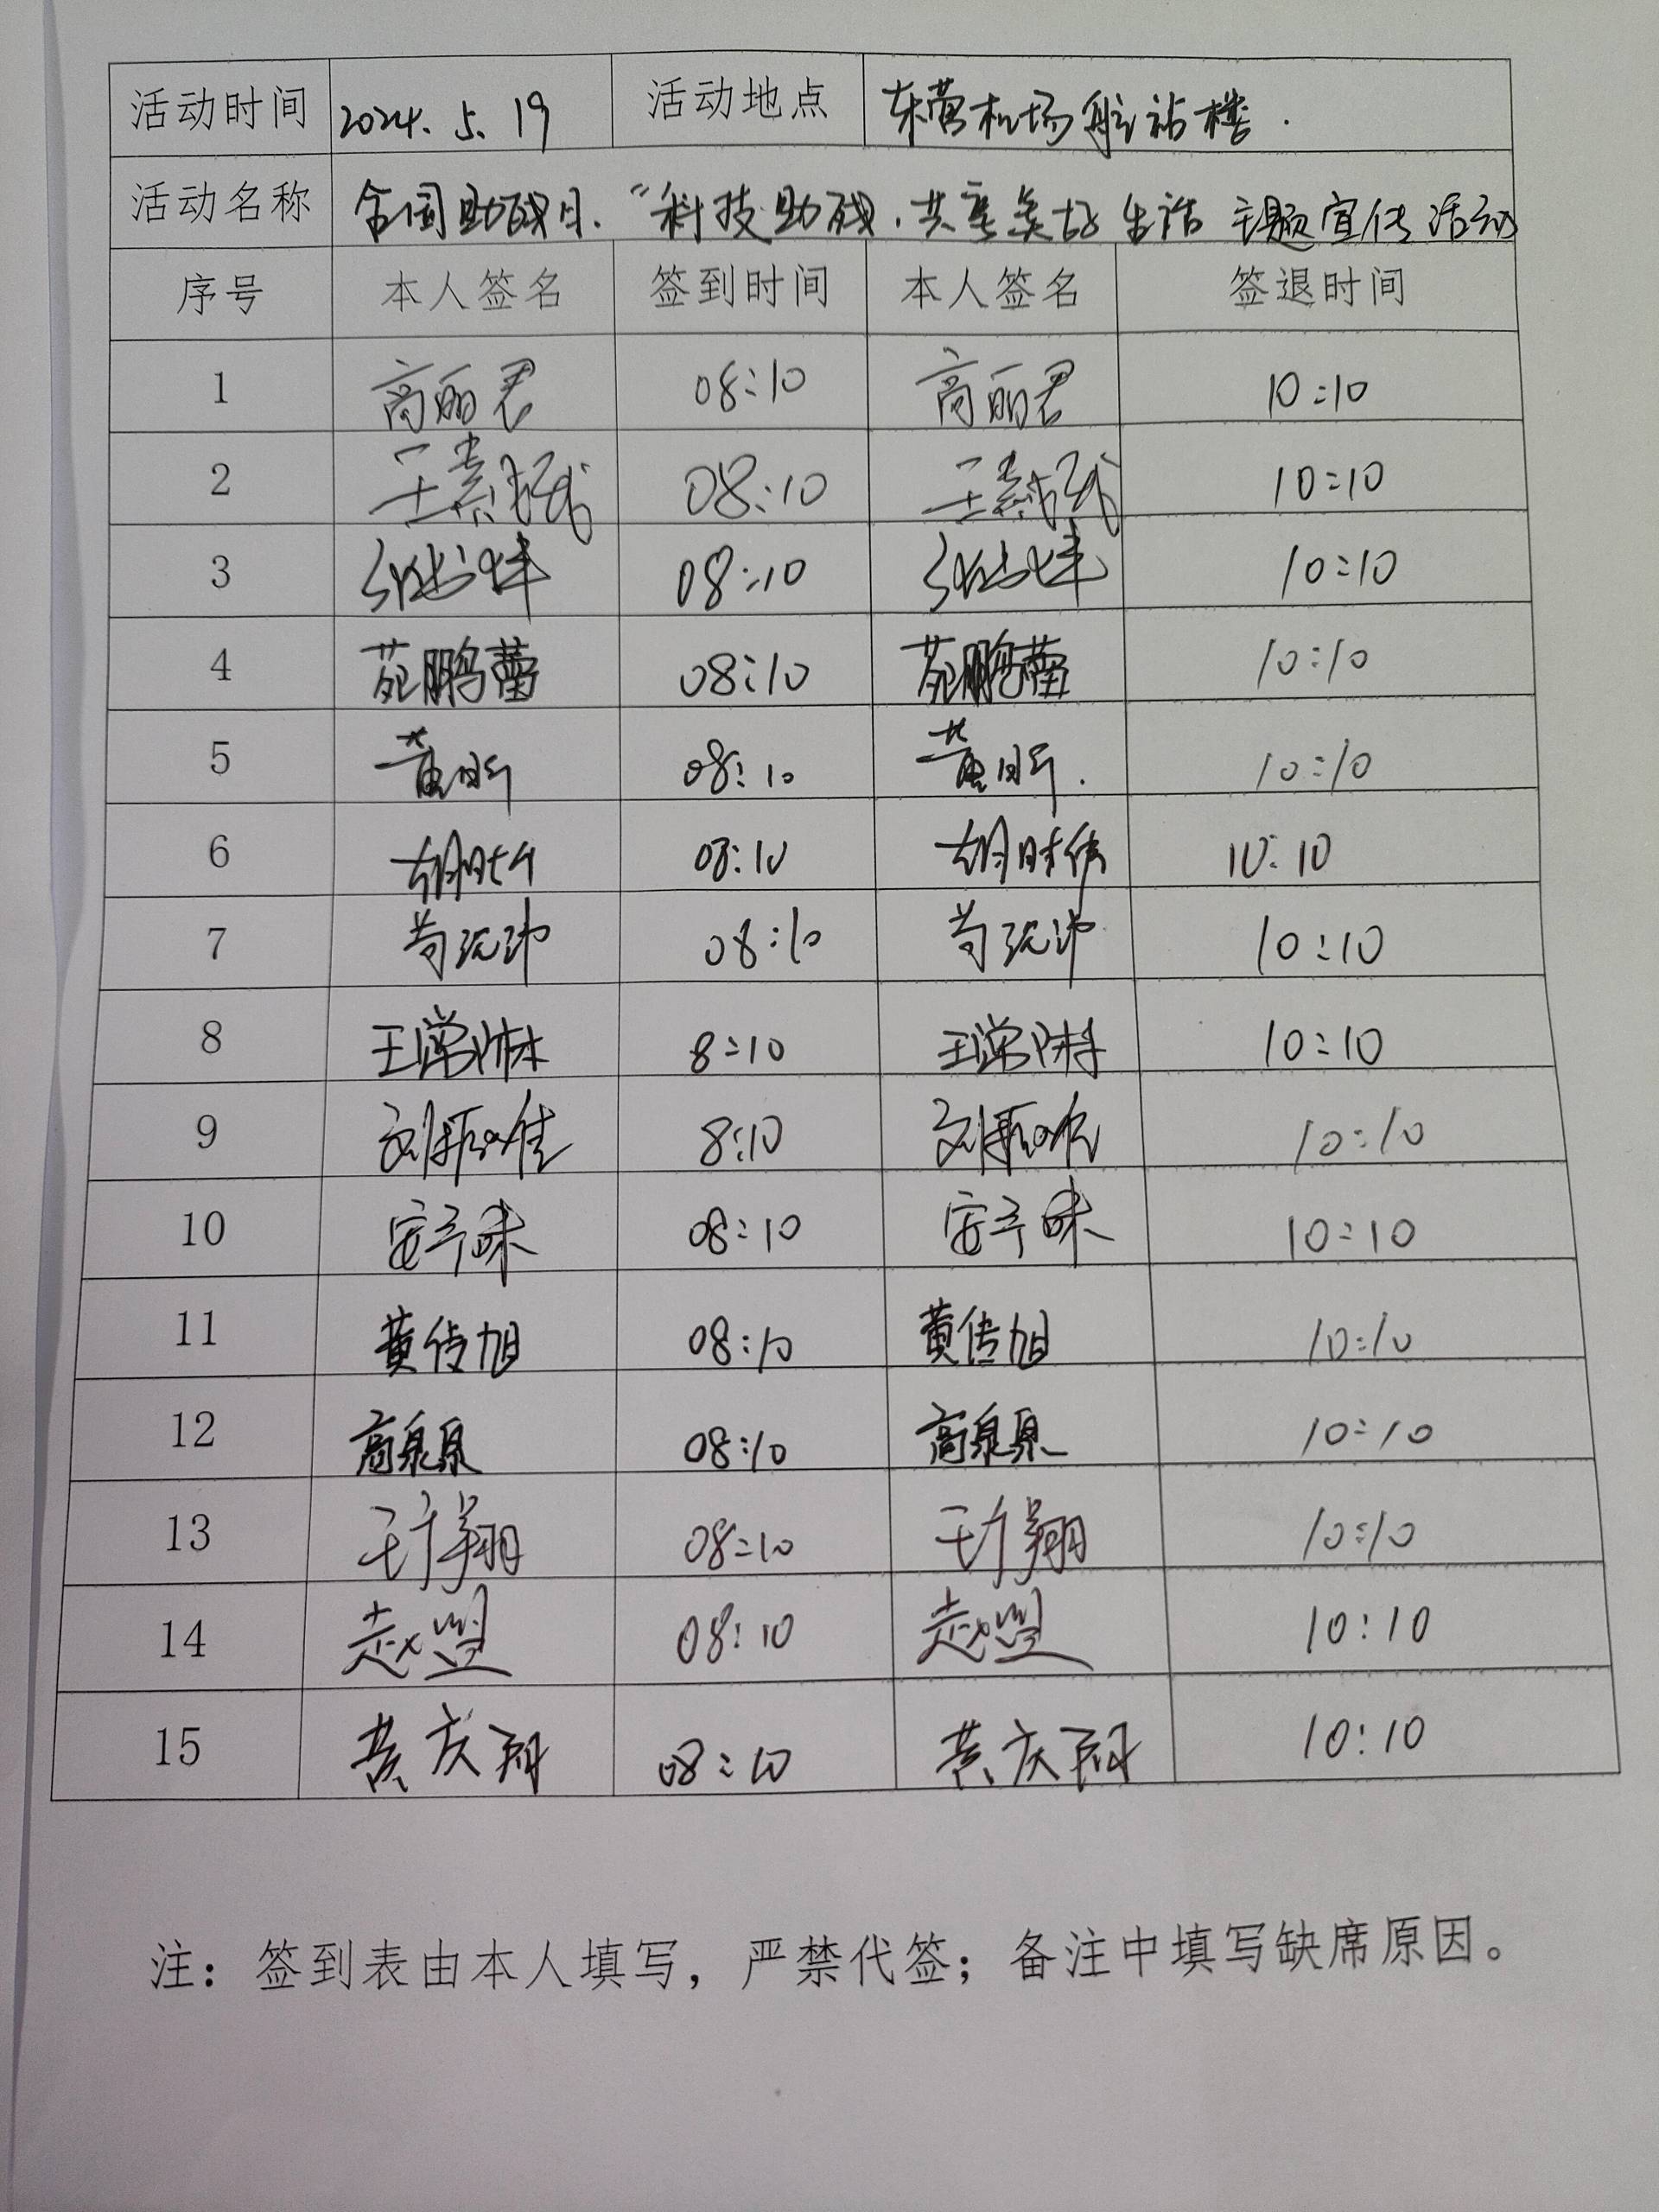 活动时间 2024.5.19 活动地点 东营机场航站楼.
活动名称 全国助残日."科技助残.共享美好生活 主题宣传活动
序号 本人签名 签到时间 本人签名 签退时间
1 高丽君 08:10 高丽君 10:10
2 王素 08:10 王素 10:10
3 08:10 10:10
4 苑鹏蕾 08:10 苑鹏蕾 10:10
5 黄昕 08:10 黄昕. 10:10
6 胡 08:10 胡 10:10
7 苟 08:10 苟 10:10
8 王 8:10 王 10:10
9 刘 8:10 刘 10:10
10 安 08:10 安 10:10
11 黄传旭 08:10 黄传旭 10:10
12 高泉泉 08:10 高泉泉 10:10
13 翔 08:10 翔 10:10
14 赵盟 08:10 赵盟 10:10
15 黄庆 08:10 黄庆 10:10
注：签到表由本人填写，严禁代签；备注中填写缺席原因。